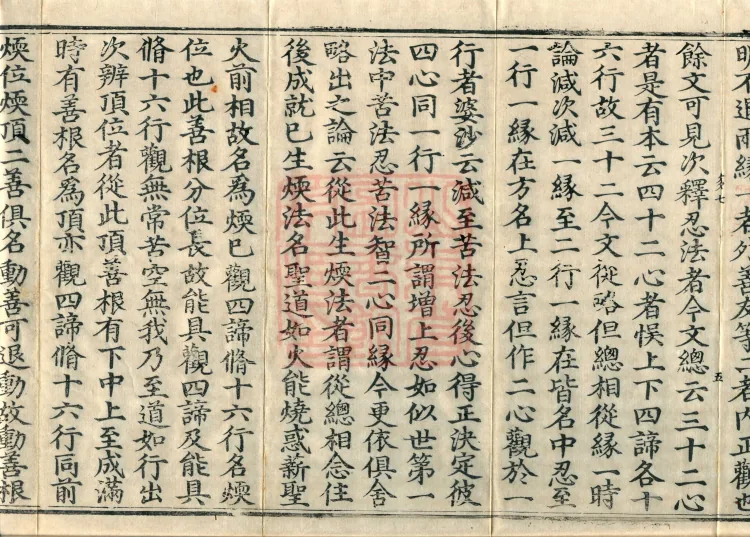 明不進而緣一者外善及等二者内正觀也
餘文可見次釋忍法者今文總云三十二心
者是有本云四十二心者悞上下四諦各十
六行故三十二今文從略但總相從緣一時
論減次減一緣至二行一緣在皆名中忍至
一行一緣在方名上忍言但作二心觀於一
行者婆沙云減至苦法忍後心得正決定彼
四心同一行一緣所謂增上忍如似世第一
法中苦法忍苦法智二心同緣今更依俱舍
略出之論云從此生煗法者謂從總相念住
後成就已生煗法名聖道如火能燒惑薪聖
火前相故名爲煗已觀四諦脩十六行名煗
位也此善根分位長故能具觀四諦及能具
脩十六行觀無常苦空無我乃至道如行出
次辨頂位者從此頂善根有下中上至成滿
時有善根名爲頂亦觀四諦脩十六行同前
煗位煗頂二善俱名動善可退動故動善根